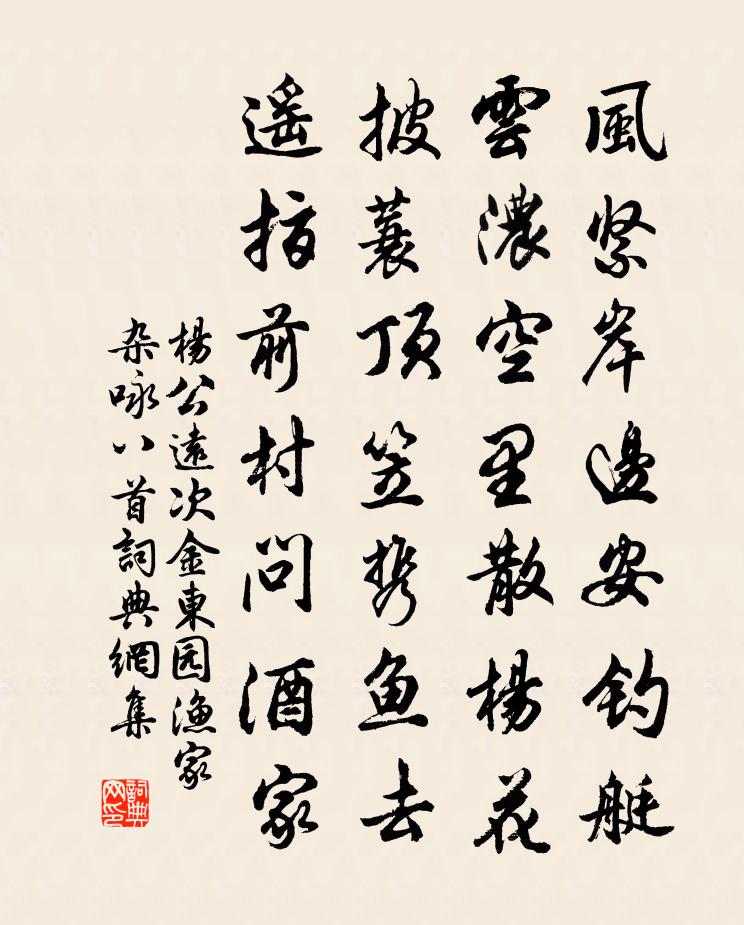 風紧岸邊安钓艇
雲濃空里散楊花
披蓑顶笠携鱼去
遥指前村问酒家
楊公遠次金東园漁家
杂咏八首詞典網集
詞典网印